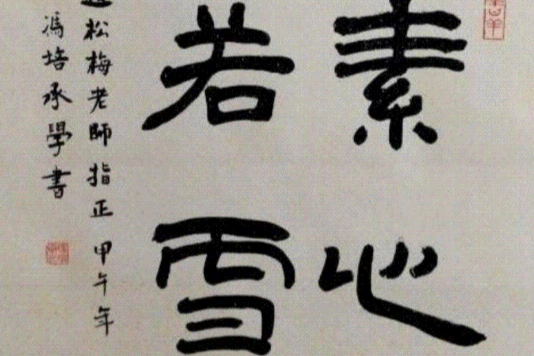 素心
若雪
松梅老師指正 甲午年
馮培承學書